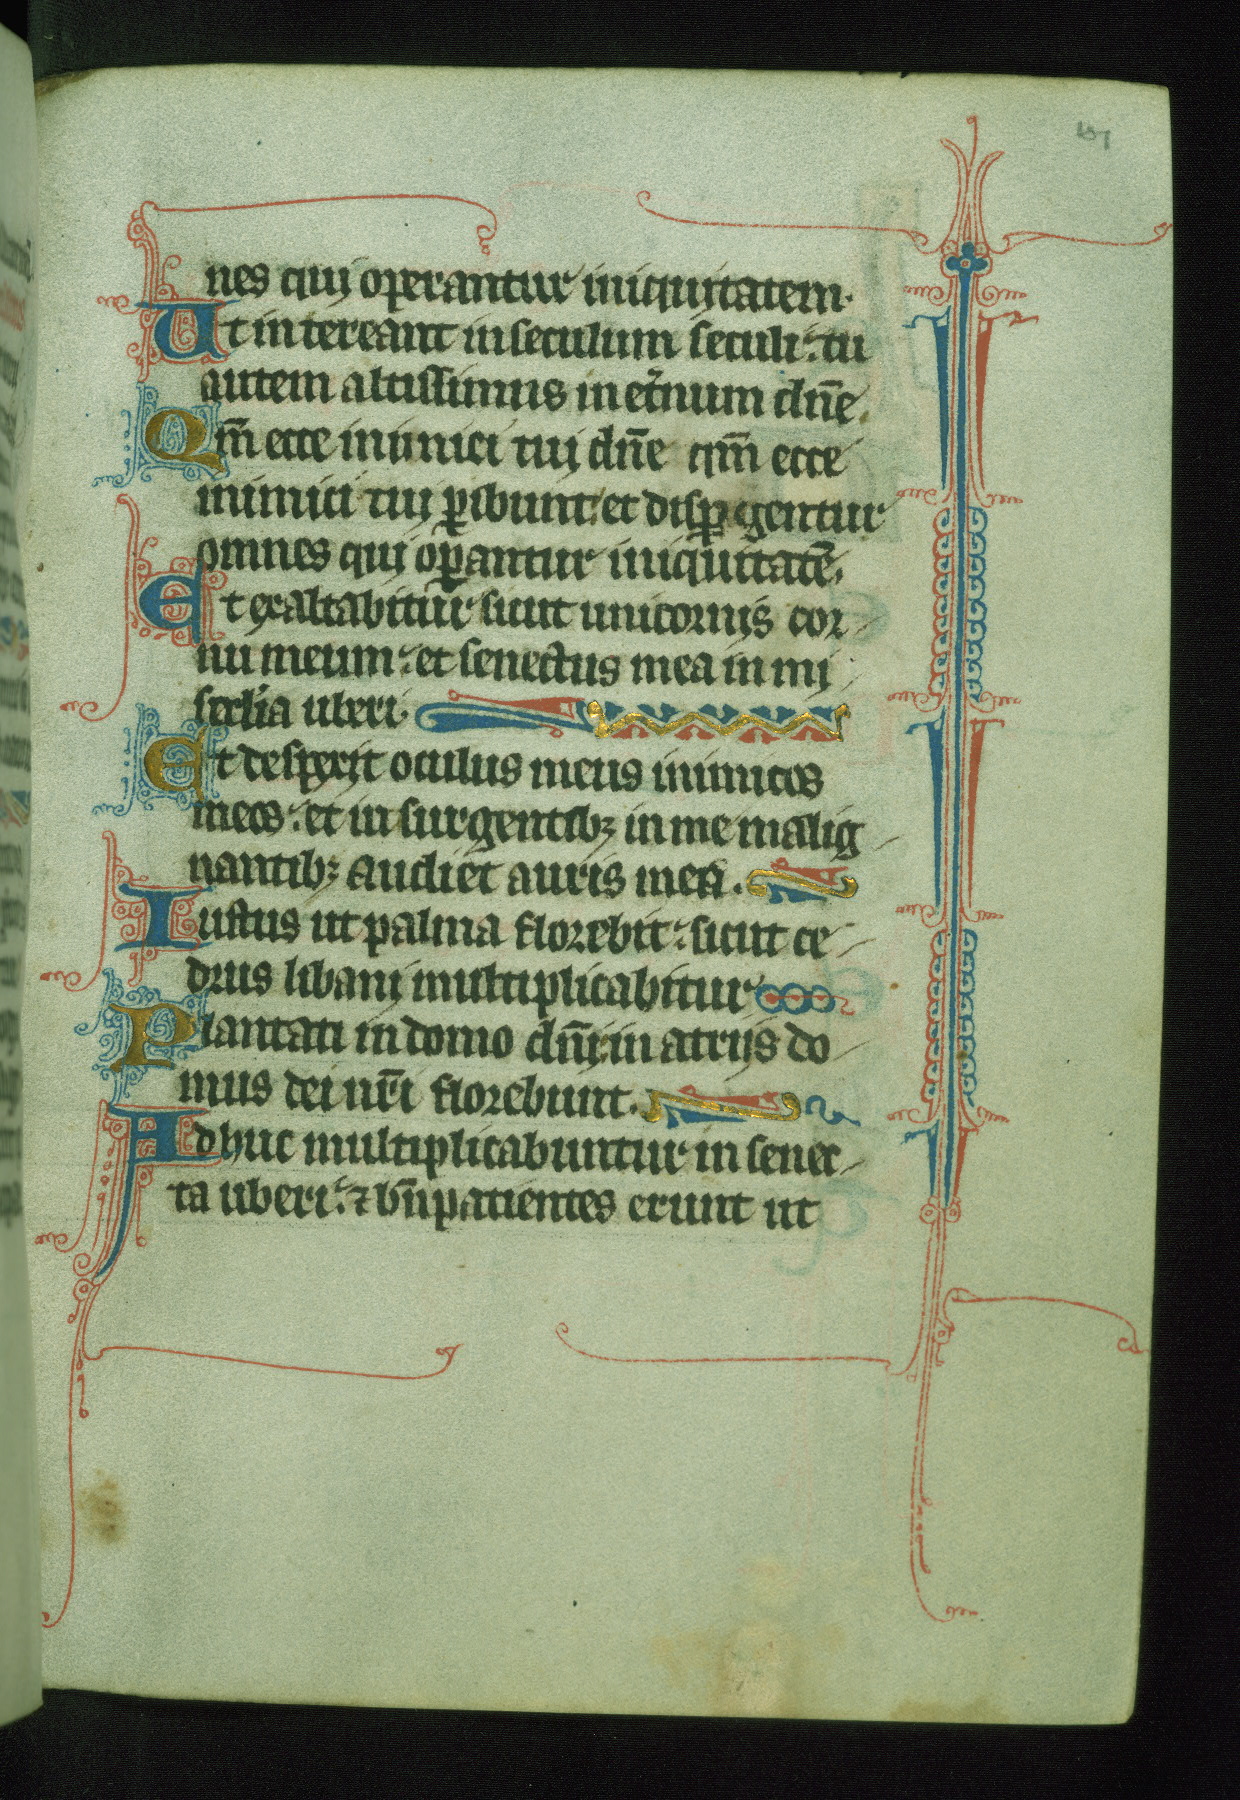 151
nes qui operantur iniquitatem.
Ut intereant in seculum seculi: tu
autem altissimus in et̾num dn̄e.
Qm̄ ecce inimici tui dn̄e qm̄ ecce
inimici tui ꝑibunt: et disꝑgentur
omnes qui oꝑantur iniquitatē.
Et exaltabitur sicut unicornis cor
nu meum: et senectus mea in mi
sc̾dia uberi.
Et despexit oculus meus inimicos
meos: et in surgentibꝫ in me malig
nantibꝫ audiet auris mea.
Iustus ut palma florebit: sicut ce
drus libani multiplicabitur
Plantati in domo dn̄i: in atrijs do
mus dei nr̄i florebunt.
Adhuc multiplicabuntur in senec
ta uberi: ⁊ bn̄ patientes erunt ut